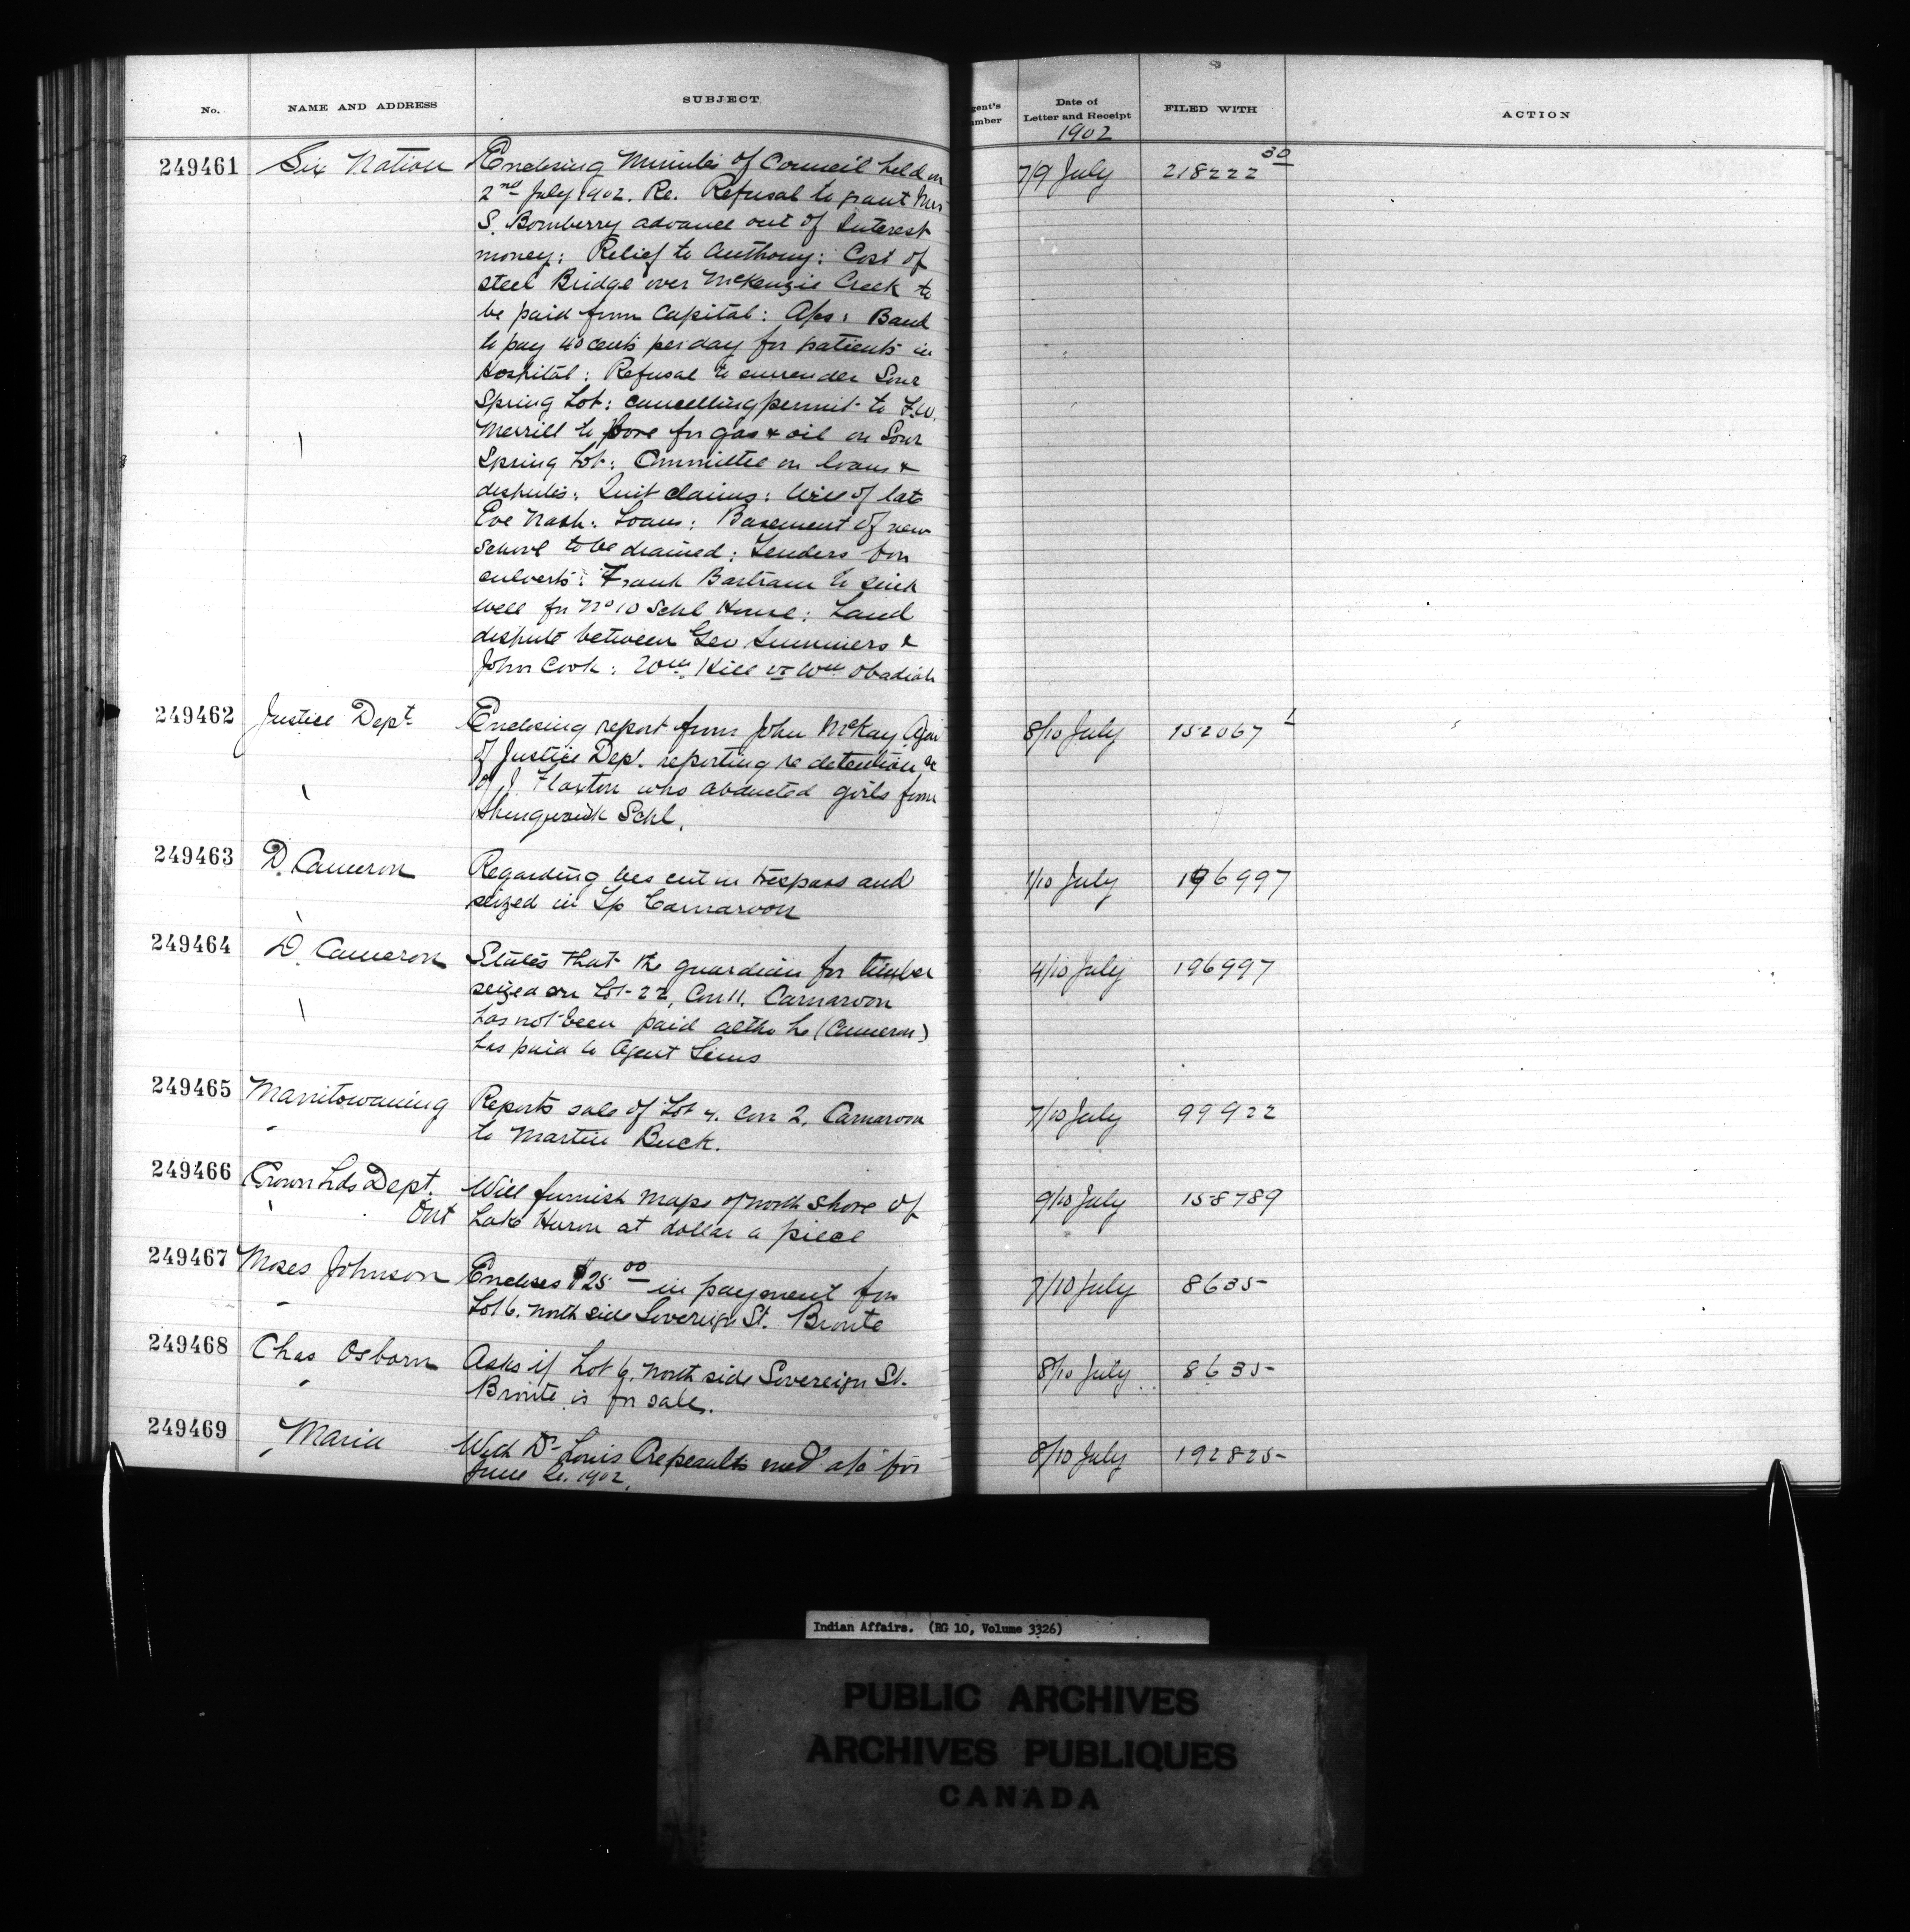 No. NAME AND ADDRESS SUBJECT gent's umber Date of Letter and Receipt FILED WITH ACTION
1902
249461 Six Nation Enclosing Minutes of Council held on 7/9 July 218222 30
2nd July 1902. Re. Refusal to grant Mrs
S. Bomberry advance out of Interest
money: Relief to Anthony: Cost of
steel Bridge over McKenzie Creek to
be paid from Capital: Aps: Band
to pay 40 cents per day for patients in
Hospital: Refusal to surrender Sour
Spring Lot: cancelling permit to F.W.
Merrill to bore for gas & oil on Sour
Spring Lot: Committee on loans &
disputes: Quit claims: Will of late
Eve Nash: Loans: Basement of new
School to be drained: Tenders for
culverts: Frank Bartram to sink
well for No 10 Schl House: Land
dispute between Geo Summers &
John Cook: Wm. Hill vs Wm Obadiah
249462 Justice Dept. Enclosing report from John McKay, Agen 8/10 July 152067 1
of Justice Dept. reporting re detention &c
of J. Flaxton who abducted girls from
Shingwauk Schl.
249463 D. Cameron Regarding ties cut in trespass and 1/10 July 196997
seized in Tp Carnarvon
249464 D. Cameron States that the guardian for timber 4/10 July 196997
seized on Lot 22, Con 11. Carnarvon
has not been paid altho he (Cameron)
has paid to Agent Sims
249465 Manitowaning Reports sale of Lot 4. Con 2, Carnarvon 7/10 July 99922
to Martin Buck.
249466 Crown Lds Dept. Ont Will furnish maps of north shore of 9/10 July 158789
Lake Huron at dollar a piece
249467 Moses Johnson Encloses $25 00 in payment for 7/10 July 8635
Lot 6. North side Sovereign St. Bronte
249468 Chas Osborn Asks if Lot 6. North side Sovereign St. 8/10 July 8635
Bronte is for sale.
249469 Maria With Dr Louis med a/c for 8/10 July 192825
June 1902.
Indian Affairs. (RG 10, Volume 3326)
PUBLIC ARCHIVES
ARCHIVES PUBLIQUES
CANADA